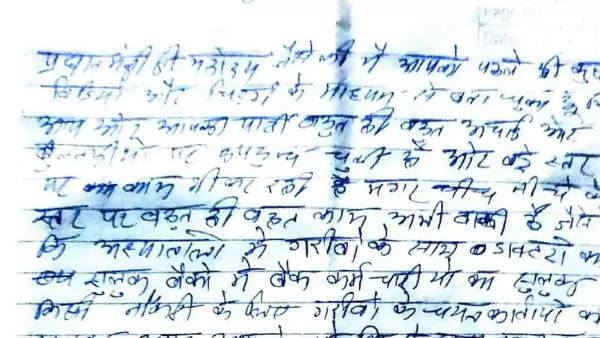 प्रधानमंत्री श्री महोदय वैसे तो मैं आपको पहले भी कुछ
विडियो और चिट्ठी के माध्यम से बता चुका हूँ कि
आप और आपकी पार्टी बहुत ही बहुत अच्छी और
पर चुकी है और बड़े स्तर
पर काम भी कर रही है मगर नीचे नीचे के
स्तर पर बहुत ही बहुत काम अभी बाकी है जैसे
कि अस्पतालों में गरीबों के साथ डाक्टरों का
सुलुक बैंको में बैंक कर्मचारीयों का सुलुक
किसी नौकरी के लिए गरीबों के